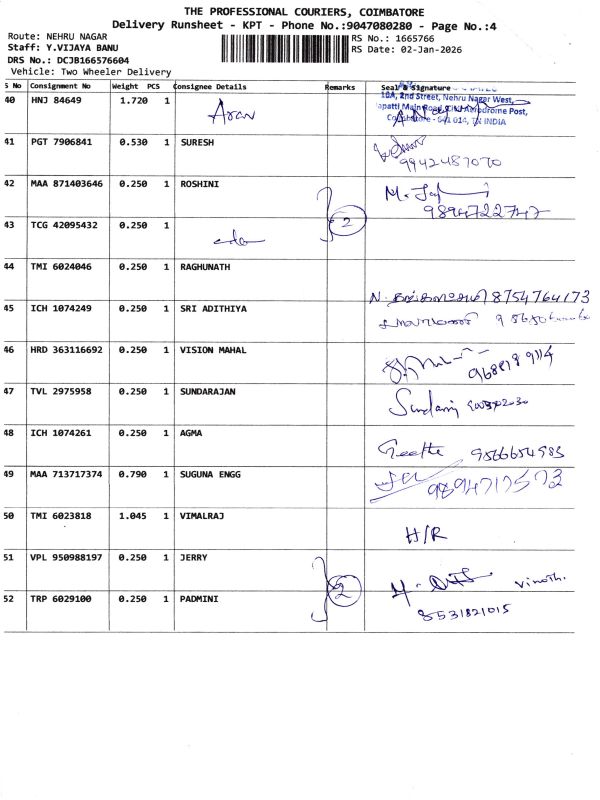 THE PROFESSIONAL COURIERS, COIMBATORE
Delivery Runsheet - KPT - Phone No.:9047080280 - Page No.:4
Route: NEHRU NAGAR
Staff: Y.VIJAYA BANU
DRS No.: DCJB166576604
Vehicle: Two Wheeler Delivery
RS No.: 1665766
RS Date: 02-Jan-2026
S No Consignment No Weight PCS Consignee Details Remarks Seal & Signature
40 HNJ 84649 1.720 1 Aran
18A, 2nd Street, Nehru Nagar West,
apatti Main Road, Civil Aerodrome Post,
Coimbatore - 641 014, TN INDIA
41 PGT 7906841 0.530 1 SURESH
9942487070
42 MAA 871403646 0.250 1 ROSHINI
9894722747
2
43 TCG 42095432 0.250 1
44 TMI 6024046 0.250 1 RAGHUNATH
8754764173
45 ICH 1074249 0.250 1 SRI ADITHIYA
46 HRD 363116692 0.250 1 VISION MAHAL
47 TVL 2975958 0.250 1 SUNDARAJAN
48 ICH 1074261 0.250 1 AGMA
Geetha 9566654983
49 MAA 713717374 0.790 1 SUGUNA ENGG
9894717572
50 TMI 6023818 1.045 1 VIMALRAJ
H/R
51 VPL 950988197 0.250 1 JERRY
2 Vinoth.
52 TRP 6029100 0.250 1 PADMINI
8531821015